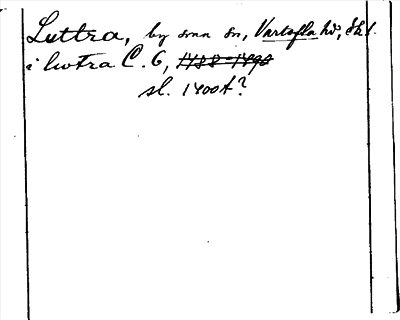 Luttra, by o sn sn, Vartofta hd, Sk l.
i luttra C. 6, 1488-1490
sl. 1400t?